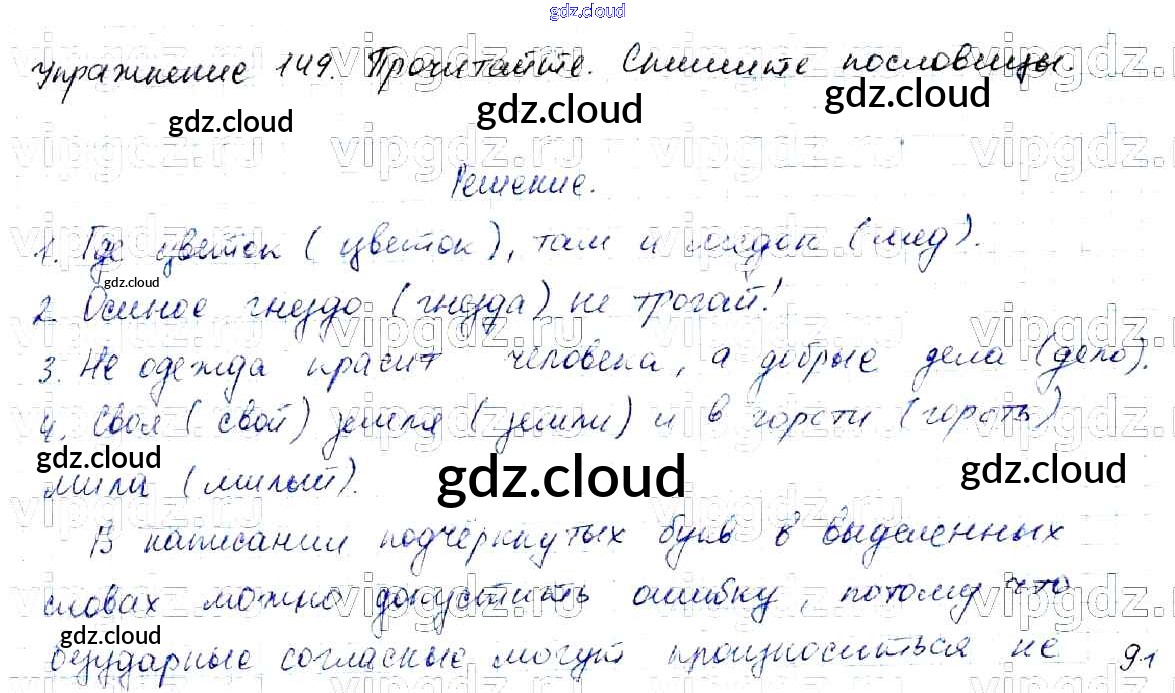 gdz.cloud
Упражнение 149. Прочитайте. Спишите пословицы.
gdz.cloud gdz.cloud gdz.cloud
vipgdz.ru vipgdz.ru vipgdz.ru vipgdz.
Решение.
1. Где цветок (цветок), там и медок (мёд).
gdz.cloud
2. Осиное гнездо (гнёзда) не трогай!
3. Не одежда красит человека, а добрые дела (дело).
4. Своя (свой) земля (земли) и в горсти (горсть)
gdz.cloud gdz.cloud gdz.cloud
мила (милый).
В написании подчёркнутых букв в выделенных
словах можно допустить ошибку, потому что
gdz.cloud
безударные согласные могут произноситься не
91